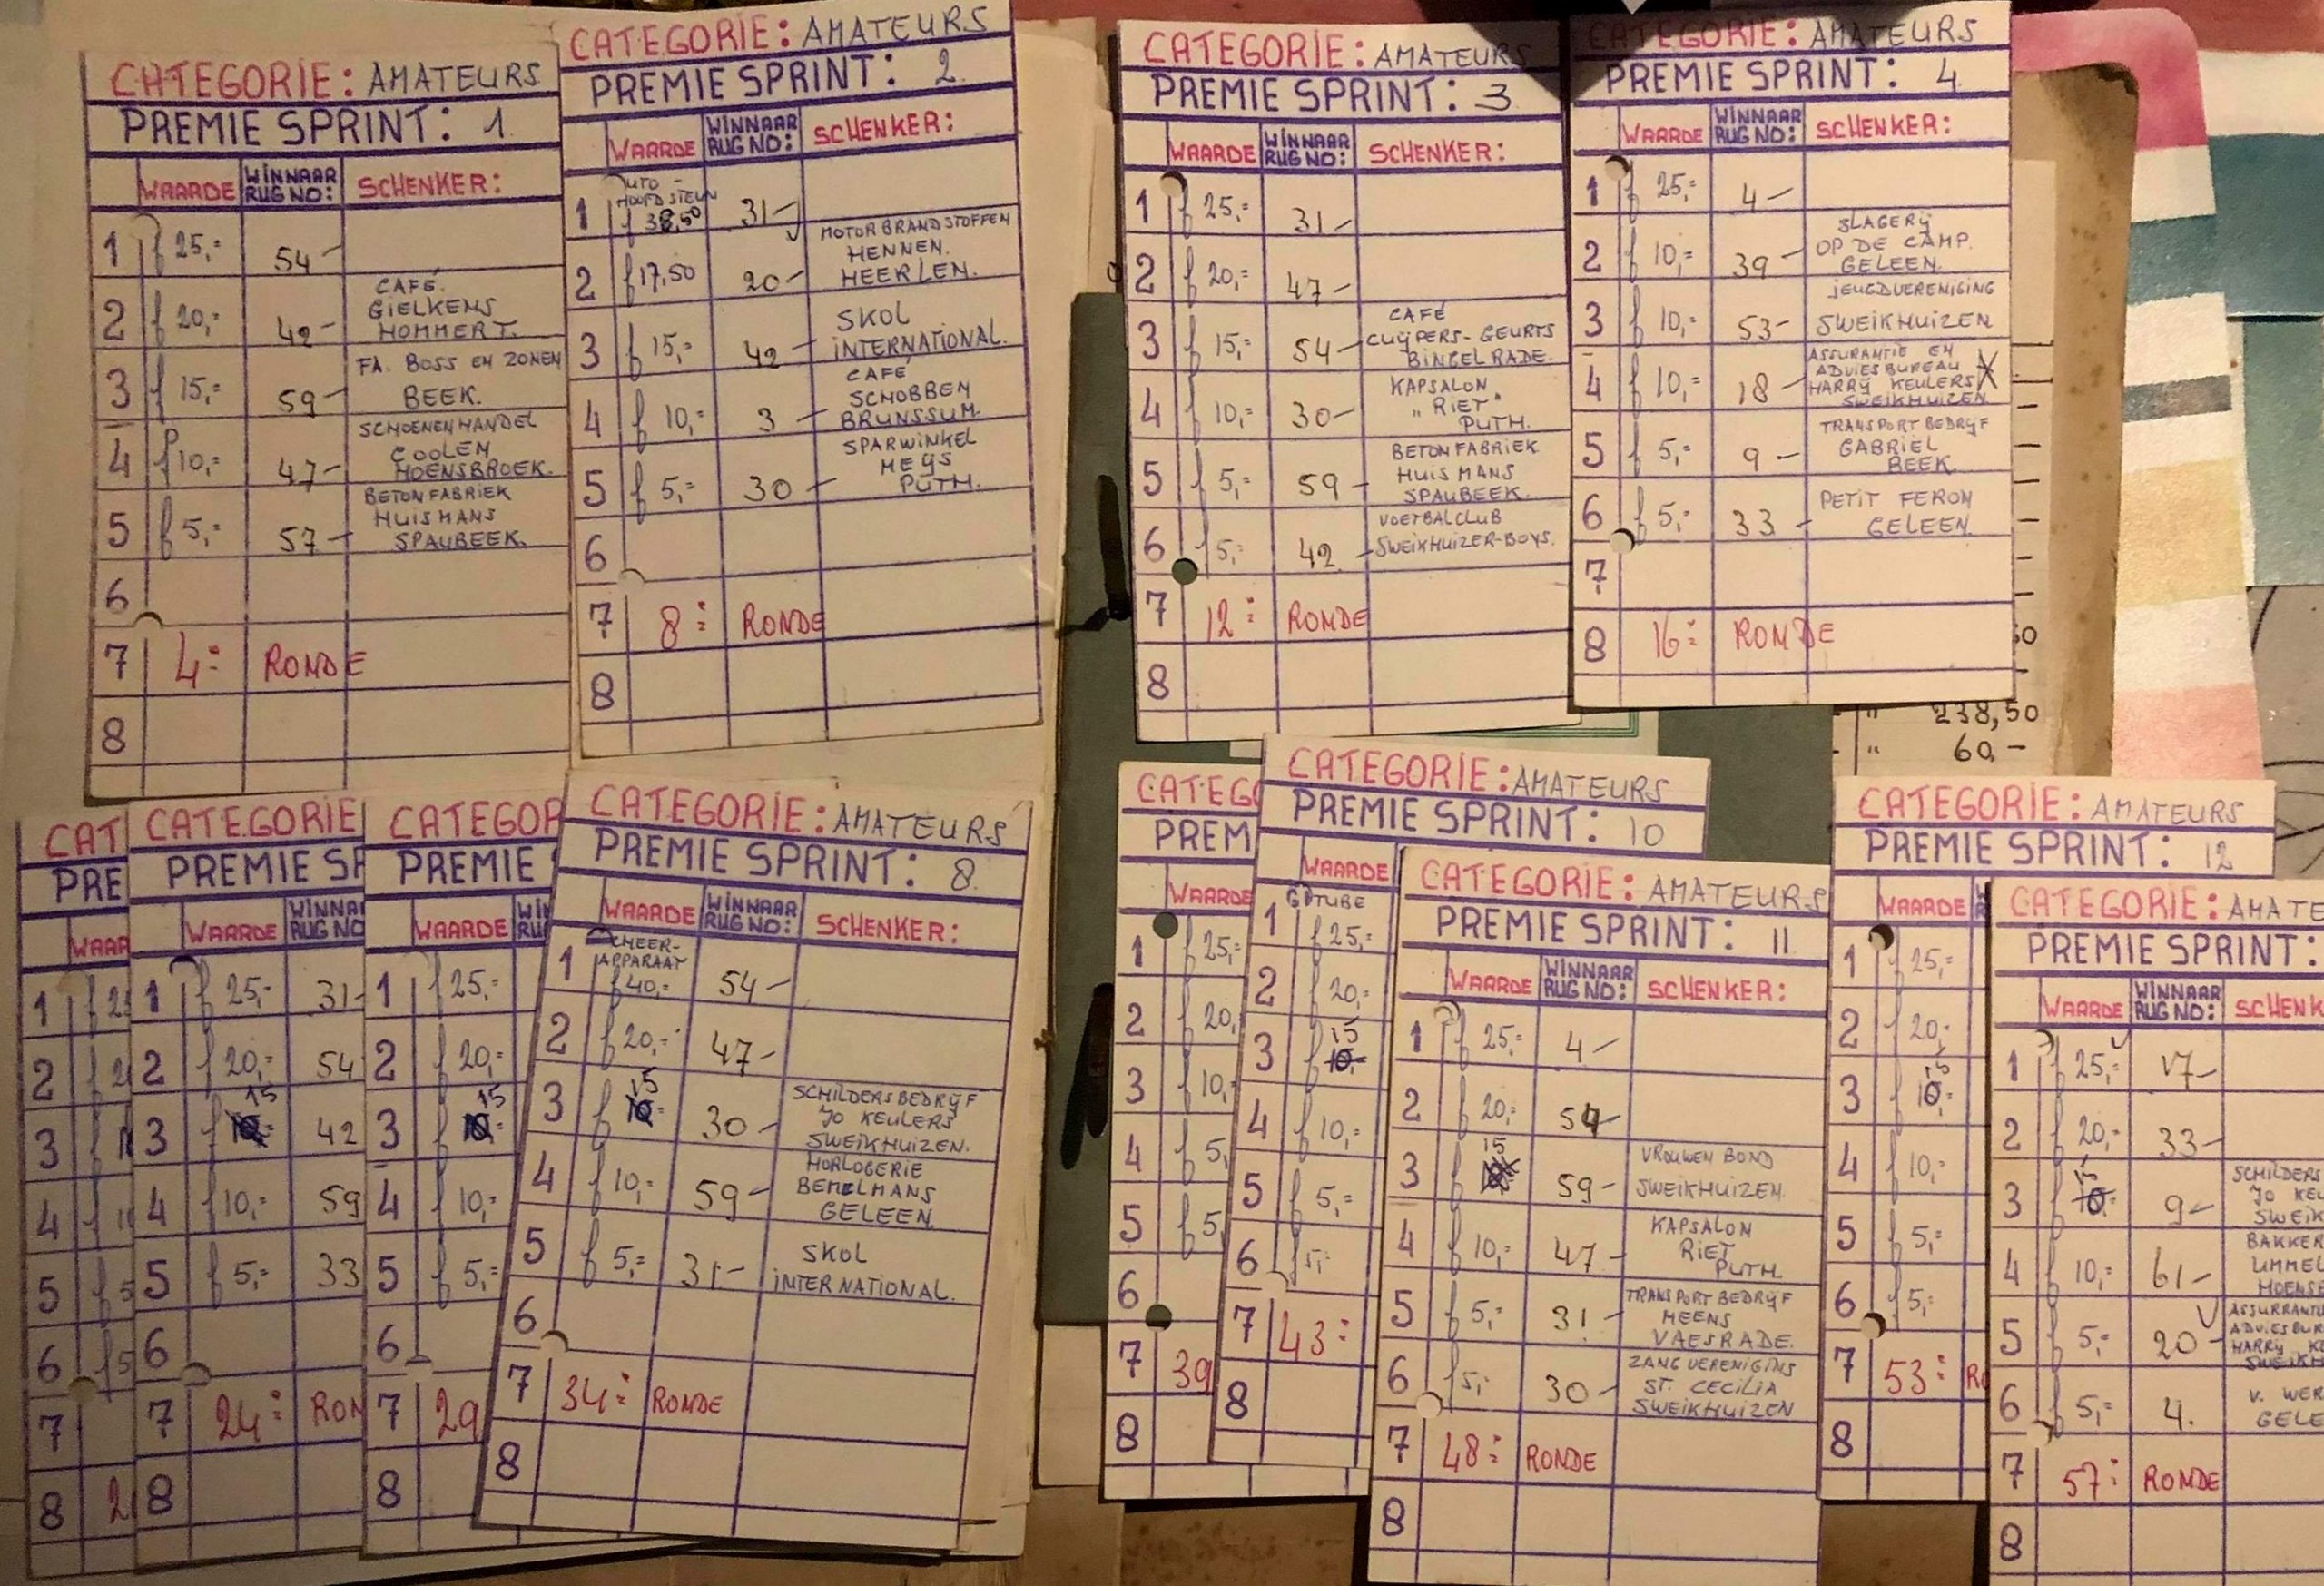 CATEGORIE: AMATEURS
PREMIE SPRINT: 1.
WAARDE WINNAAR RUG NO: SCHENKER:
1 f 25,= 54-
2 f 20,= 42- CAFÉ. GIELKENS HOMMERT.
3 f 15,= 59- FA. BOSS EN ZONEN BEEK.
4 f 10,= 47- SCHOENENHANDEL COOLEN HOENSBROEK.
5 f 5,= 57- BETONFABRIEK HUISMANS SPAUBEEK.
6
7 4: RONDE
8
CATEGORIE: AMATEURS
PREMIE SPRINT: 2.
WAARDE WINNAAR RUG NO: SCHENKER:
1 AUTO-HOOFDSTEUN f 38,50 31-
2 f 17,50 20- MOTORBRANDSTOFFEN HENNEN. HEERLEN.
3 f 15,= 42- SKOL INTERNATIONAL.
4 f 10,= 3- CAFÉ SCHOBBEN BRUNSSUM.
5 f 5,= 30- SPARWINKEL MEYS PUTH.
6
7 8: RONDE
8
CATEGORIE: AMATEURS
PREMIE SPRINT: 3
WAARDE WINNAAR RUG NO: SCHENKER:
1 f 25,= 31-
2 f 20,= 47-
3 f 15,= 54- CAFÉ CUYPERS-GEURTS BINGELRADE.
4 f 10,= 30- KAPSALON "RIET" PUTH.
5 f 5,= 59- BETONFABRIEK HUISMANS SPAUBEEK.
6 f 5,- 42- VOETBALCLUB SWEIKHUIZER-BOYS.
7 12: RONDE
8
CATEGORIE: AMATEURS
PREMIE SPRINT: 4
WAARDE WINNAAR RUG NO: SCHENKER:
1 f 25,= 4-
2 f 10,= 39- SLAGERY OP DE CAMP. GELEEN.
3 f 10,= 53- JEUGDVERENIGING SWEIKHUIZEN
4 f 10,= 18- ASSURANTIE EN ADVIESBUREAU HARRY KEULERS SWEIKHUIZEN
5 f 5,- 9- TRANSPORTBEDRYF GABRIEL BEEK
6 f 5,- 33- PETIT FERON GELEEN.
7
8 16: RONDE
238,50
" 60,-
CAT
PRE
WAAR
1
2
3
4
5 f 5
6 f 5
7
8
CATEGORIE
PREMIE SP
WAARDE WINNA RUG NO
1 f 25,- 31-
2 f 20,= 54
3 f 15 42
4 f 10,= 59
5 f 5,= 33
6
7 24: RON
8
CATEGOR
PREMIE
WAARDE
1 f 25,=
2 f 20,=
3 f 15
4 f 10,=
5 f 5,=
6
7 29
8
CATEGORIE: AMATEURS
PREMIE SPRINT: 8.
WAARDE WINNAAR RUG NO: SCHENKER:
1 SCHEER-APPARAAT f 40,= 54-
2 f 20,= 47-
3 f 15 30- SCHILDERSBEDRYF JO KEULERS SWEIKHUIZEN.
4 f 10,= 59- HORLOGERIE BEMELMANS GELEEN.
5 f 5,= 31- SKOL INTERNATIONAL.
6
7 34: RONDE
8
CATEG
PREM
WAARDE
1 f 25,=
2 f 20,
3 f 10,
4 f 5,
5 f 5,
6
7 39
8
CATEGORIE: AMATEURS
PREMIE SPRINT: 10
WAARDE
1 f 25,=
2 f 20,=
3 f 15 10-
4 f 10,=
5 f 5,=
6 f 5,-
7 43:
8
CATEGORIE: AMATEURS
PREMIE SPRINT: 11
WAARDE WINNAAR RUG NO: SCHENKER:
1 f 25,= 4-
2 f 20,= 54-
3 f 15 59- VROUWENBOND SWEIKHUIZEN.
4 f 10,= 47- KAPSALON RIET PUTH
5 f 5,- 31- TRANSPORTBEDRYF MEENS VAESRADE.
6 f 5,- 30- ZANGVERENIGING ST. CECILIA SWEIKHUIZEN
7 48: RONDE
8
CATEGORIE: AMATEURS
PREMIE SPRINT: 12
WAARDE
1 f 25,=
2 f 20,-
3 f 15 10,-
4 f 10,-
5 f 5,=
6 f 5,-
7 53: RO
8
CATEGORIE: AMATE
PREMIE SPRINT:
WAARDE WINNAAR RUG NO: SCHENK
1 f 25,= 17-
2 f 20,- 33-
3 f 15 10,- 9- SCHILDERS JO KEU SWEIK
4 f 10,= 61- BAKKER UMMEL HOENSB
5 f 5,- 20- ADVIESBUR HARRY KE SWEIKH
6 f 5,- 4. V. WER GELE
7 57: RONDE
8